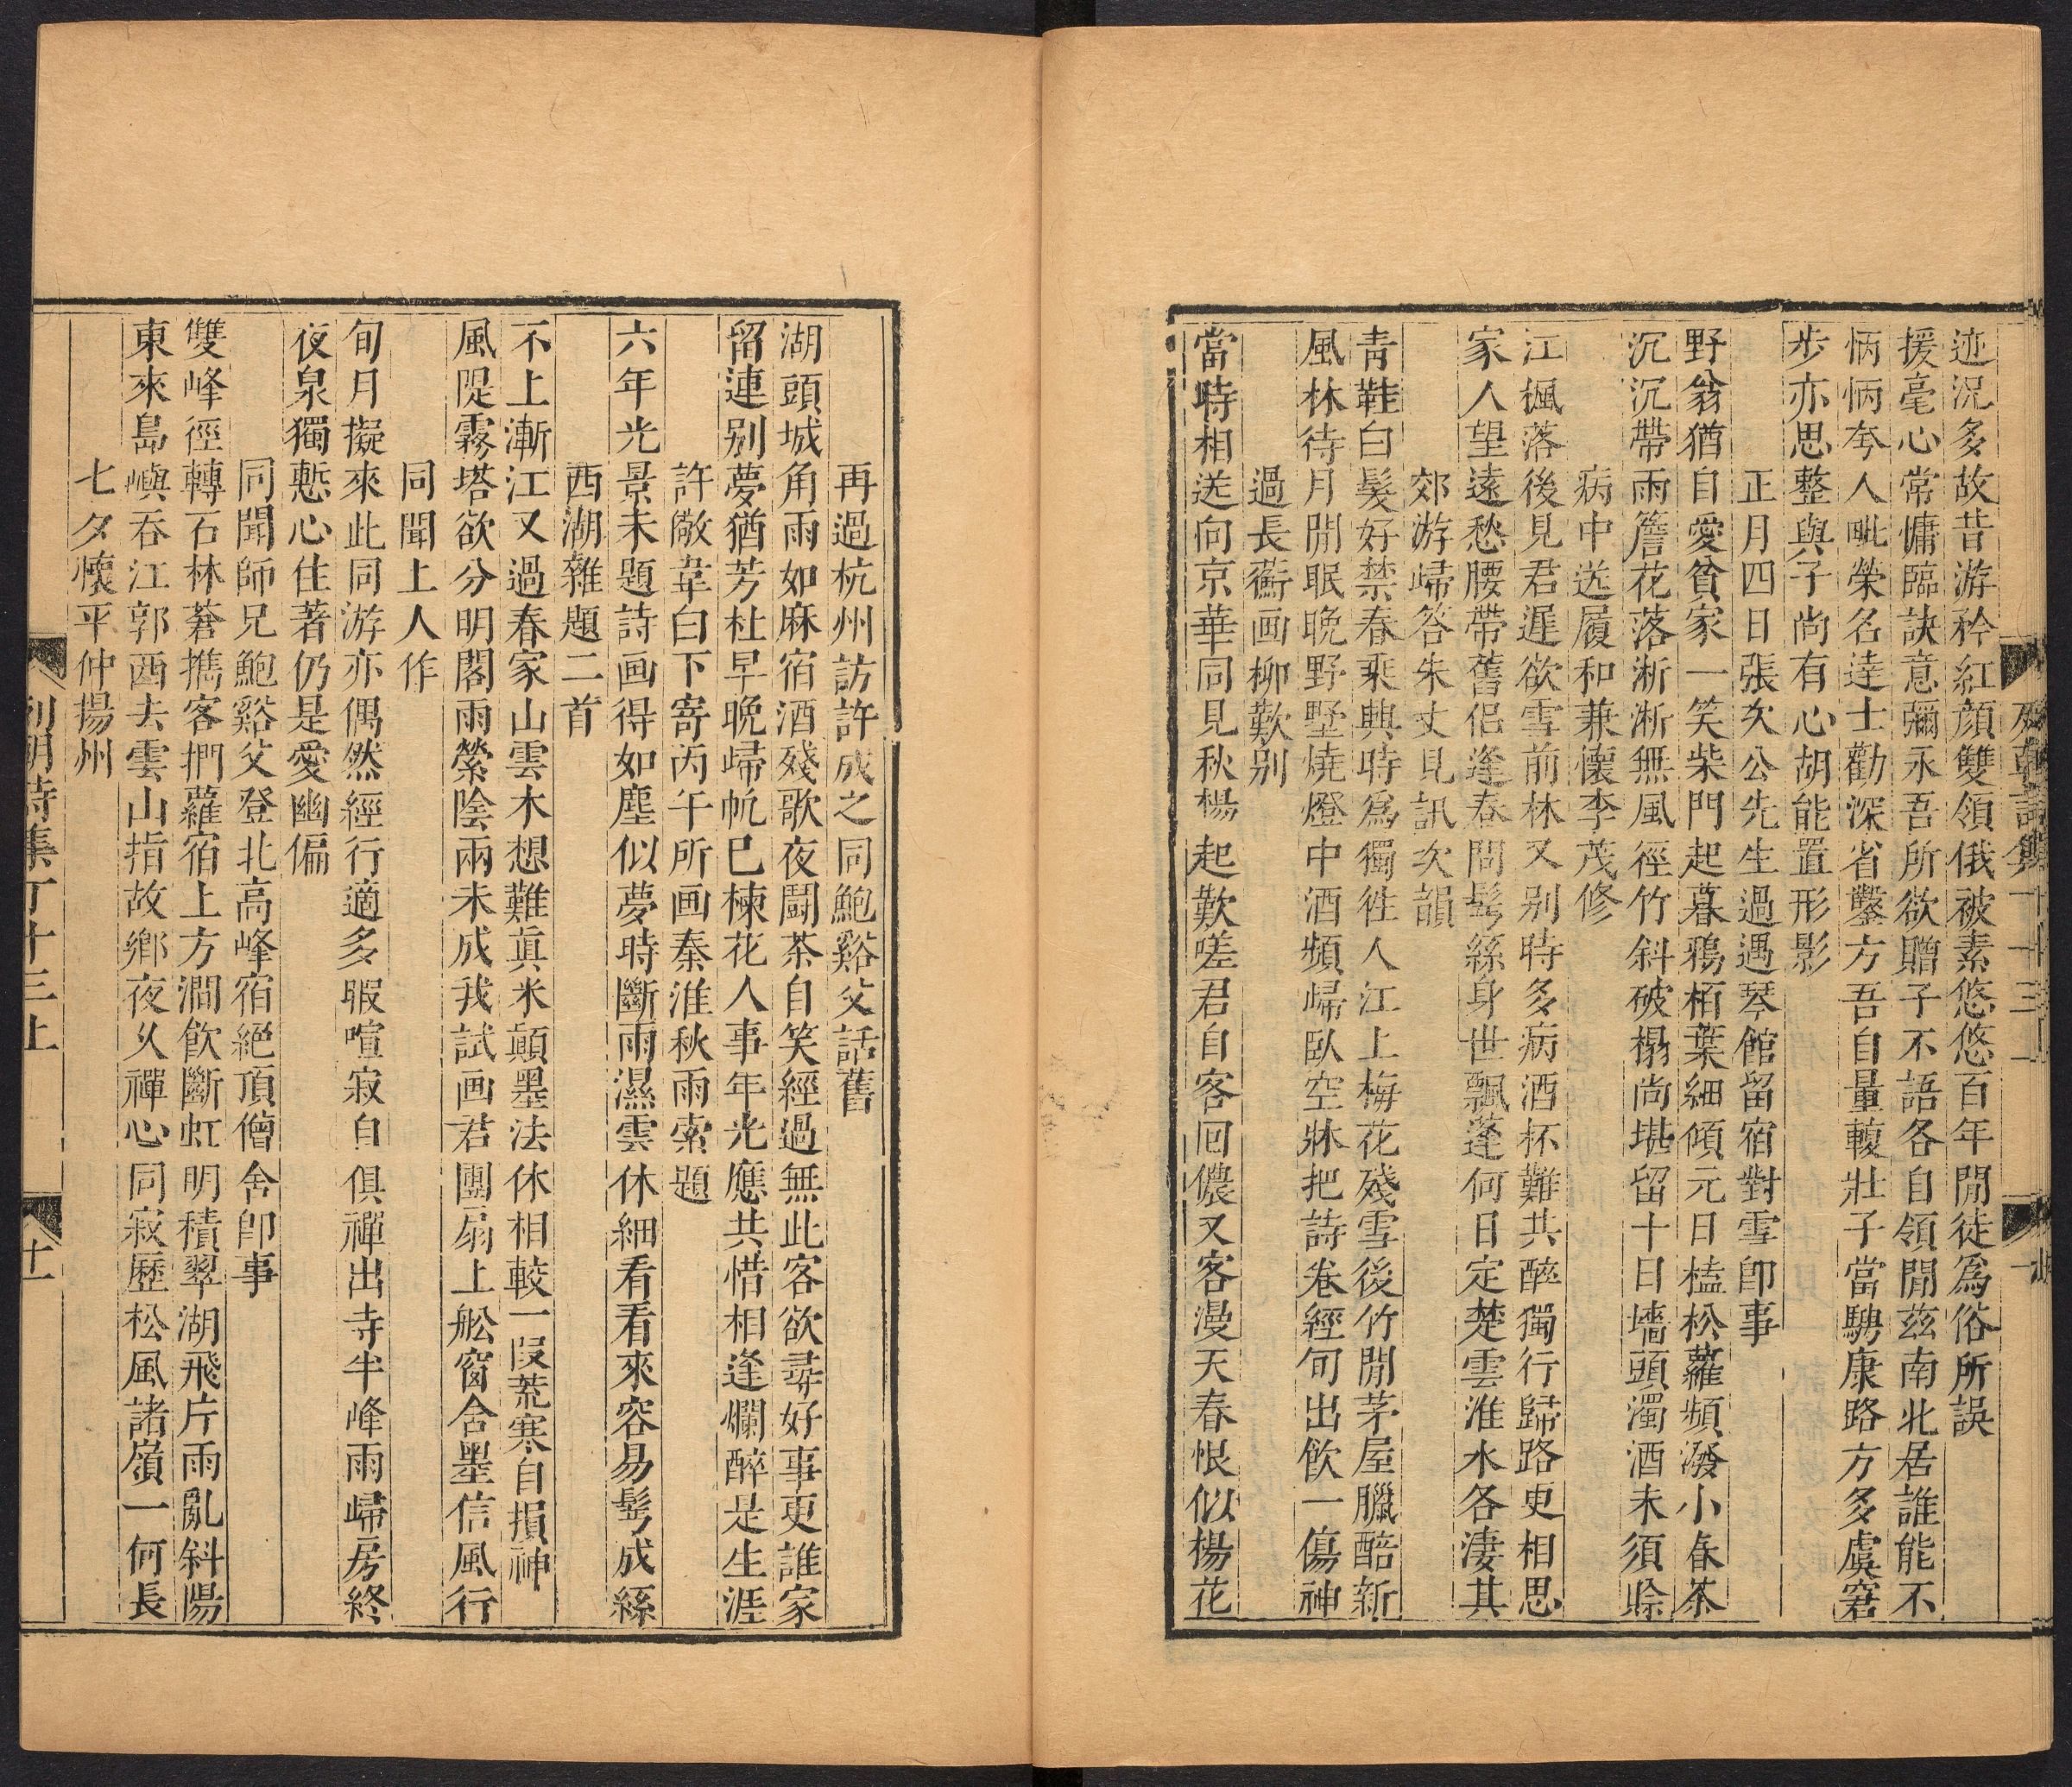 迹況多故昔游矜紅顔雙領俄被素悠悠百年閒徒爲俗所誤
援毫心常慵臨訣意彌永吾所欲贈子不語各自領閒茲南北居誰能不
怲怲夸人毗榮名達士勸深省鑿方吾自量轅壯子當騁康路方多虞窘
步亦思整與子尚有心胡能置形影
正月四日張夂公先生過遇琴館留宿對雪卽事
野翁猶自愛貧家一笑柴門起暮鴉栢葉細傾元日榼松蘿頻潑小春茶
沉沉帶雨簷花落淅淅無風徑竹斜破榻尚堪留十日墻頭濁酒未須賒
病中送履和兼懷李茂修
江楓落後見君遲欲雪前林又别時多病酒杯難共醉獨行歸路更相思
家人望遠愁腰帶舊侣逢春問髩絲身世飄蓬何日定楚雲淮水各淒其
郊游歸答朱丈見訊次韻
青鞋白髮好禁春乘興時爲獨徃人江上梅花殘雪後竹閒茅屋臘醅新
風林待月閒眠晚野墅燒燈中酒頻歸臥空牀把詩卷經旬出飲一傷神
過長蘅画柳歎别
當時相送向京華同見秋楊起歎嗟君自客囘儂又客漫天春恨似楊花
再過杭州訪許成之同鮑谿父話舊
湖頭城角雨如麻宿酒殘歌夜鬭茶自笑經過無此客欲尋好事更誰家
留連别夢猶芳杜早晚歸帆已楝花人事年光應共惜相逢爛醉是生涯
許儆韋白下寄丙午所画秦淮秋雨索題
六年光景未題詩画得如塵似夢時斷雨濕雲休細看看來容易髩成絲
西湖雜題二首
不上漸江又過春家山雲木想難眞米顛墨法休相較一段荒寒自損神
風隄霧塔欲分明閣雨縈陰兩未成我試画君團扇上舩窗含墨信風行
同聞上人作
旬月擬來此同游亦偶然經行適多暇喧寂自俱禪出寺半峰雨歸房終
夜泉獨慙心住著仍是愛幽偏
同聞師兄鮑谿父登北高峰宿絕頂僧舍卽事
雙峰徑轉石林蒼擕客捫蘿宿上方澗飲斷虹明積翠湖飛片雨亂斜陽
東來島嶼吞江郭西去雲山指故鄉夜久禪心同寂歷松風諸嶺一何長
七夕懷平仲揚州
列朝詩集丁十三上
十一